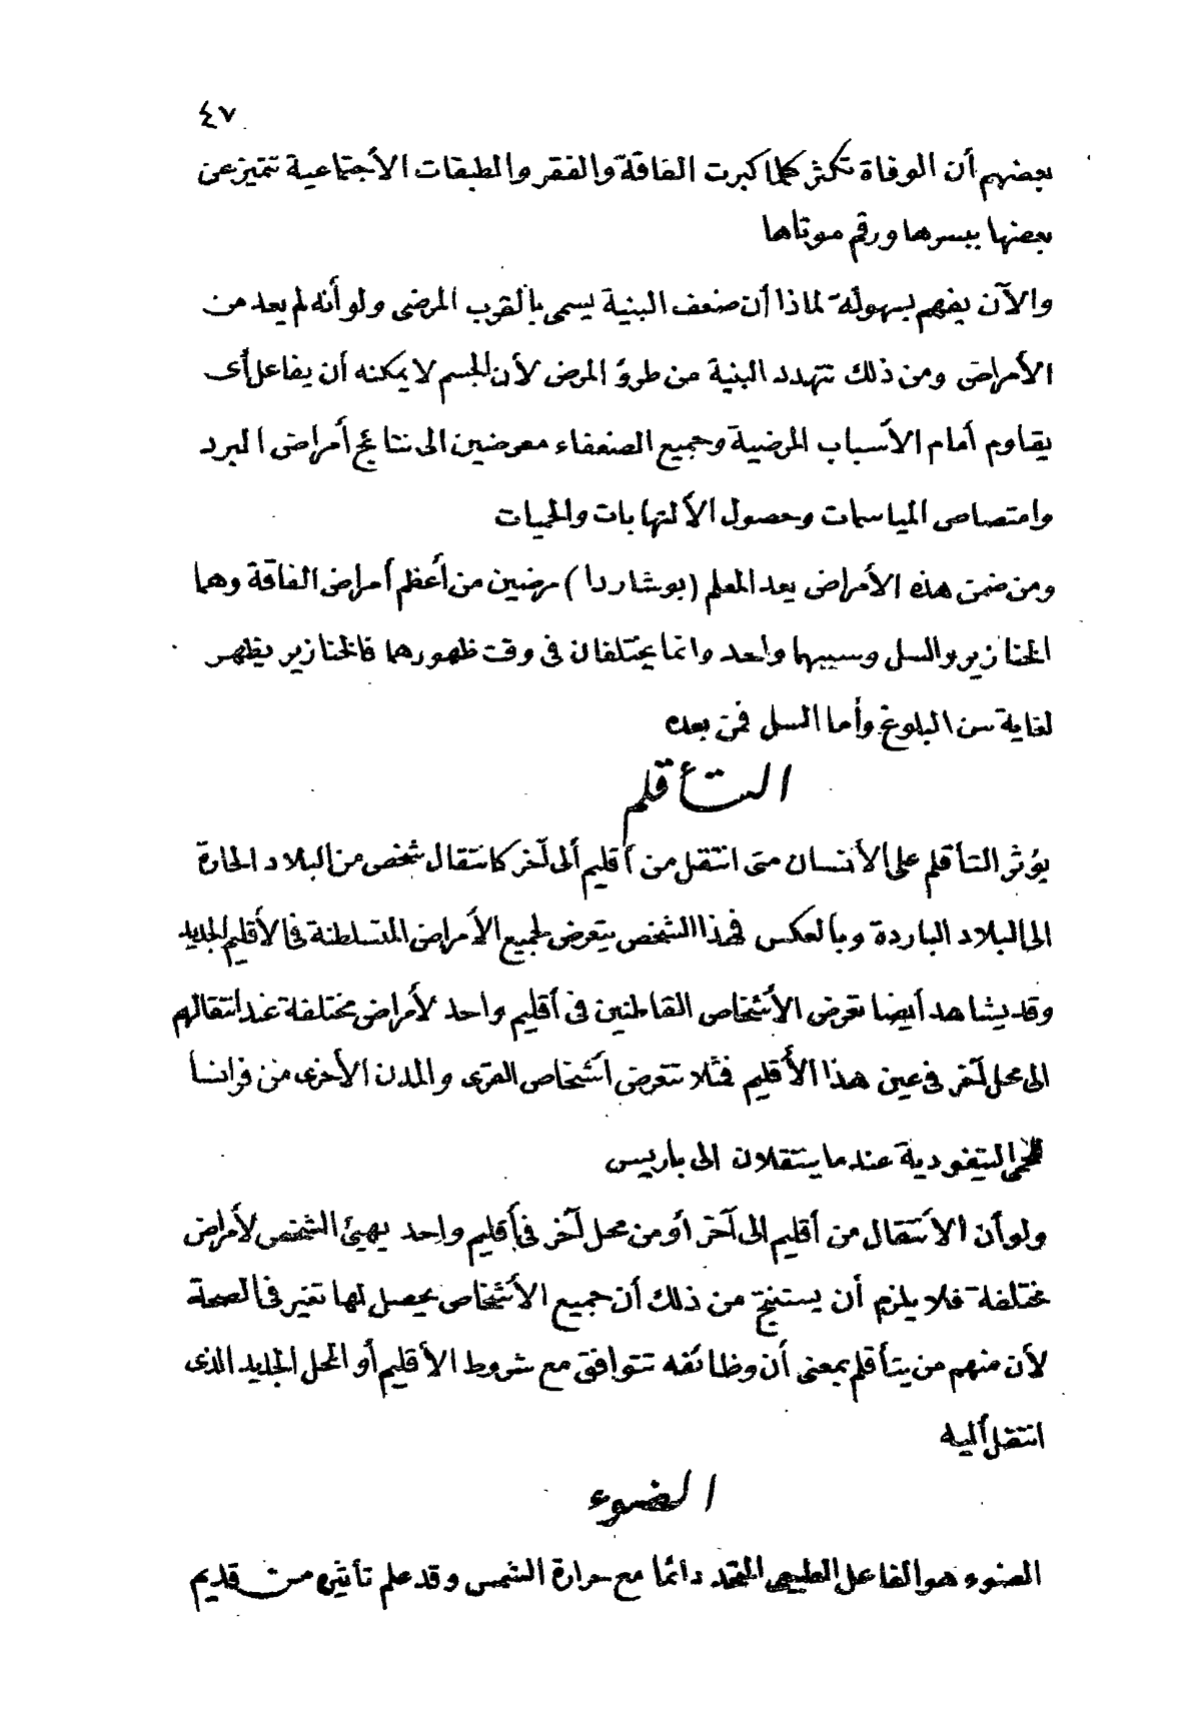 ٤٧
بعضهم أن الوفاة تكثر كلما كبرت الفاقة والفقر والطبقات الأجتماعية تتميز عن
بعضها بيسرها ورقم موتاها
والآن يفهم بسهولة لماذا أن ضعف البنية يسمى بالقرب المرضى ولو أنه لم يعد من
الأمراض ومن ذلك تتهدد البنية من طرؤ المرض لأن الجسم لا يمكنه أن يفاعل أى
يقاوم أمام الأسباب المرضية وجميع الضعفاء معرضين الى نتائج أمراض البرد
وامتصاص المياسمات وحصول الألتهابات والحميات
ومن ضمن هذه الأمراض يعد المعلم (بوشاردا) مرضين من أعظم أمراض الفاقة وهما
الخنازير والسل وسببهما واحد وانما يختلفان فى وقت ظهورهما فالخنازير يظهر
لغاية سن البلوغ وأما السل فمن بعده
التأقلم
يؤثر التأقلم على الأنسان متى انتقل من أقليم ألى آخر كانتقال شخص من البلاد الحارة
الى البلاد الباردة وبالعكس فهذا الشخص يتعرض لجميع الأمراض المتسلطنة فى الأقليم الجديد
وقد يشاهد أيضا تعرض الأشخاص القاطنين فى أقليم واحد لأمراض مختلفة عند انتقالهم
الى محل آخر فى عين هذا الأقليم فمثلا تتعرض أشخاص القرى والمدن الأخرى من فرانسا
للحمى التيفودية عند ما ينتقلان الى باريس
ولو أن الأنتقال من أقليم الى آخر أو من محل آخر فى أقليم واحد يهيئ الشخص لأمراض
مختلفة فلا يلزم أن يستنتج من ذلك أن جميع الأشخاص يحصل لها تغير فى الصحة
لأن منهم من يتأقلم بمعنى أن وظائفه تتوافق مع شروط الأقليم أو المحل الجديد الذى
انتقل أليه
الضوء
الضوء هو الفاعل الطبيعى المتحد دائما مع حرارة الشمس وقد علم تأثيره من قديم